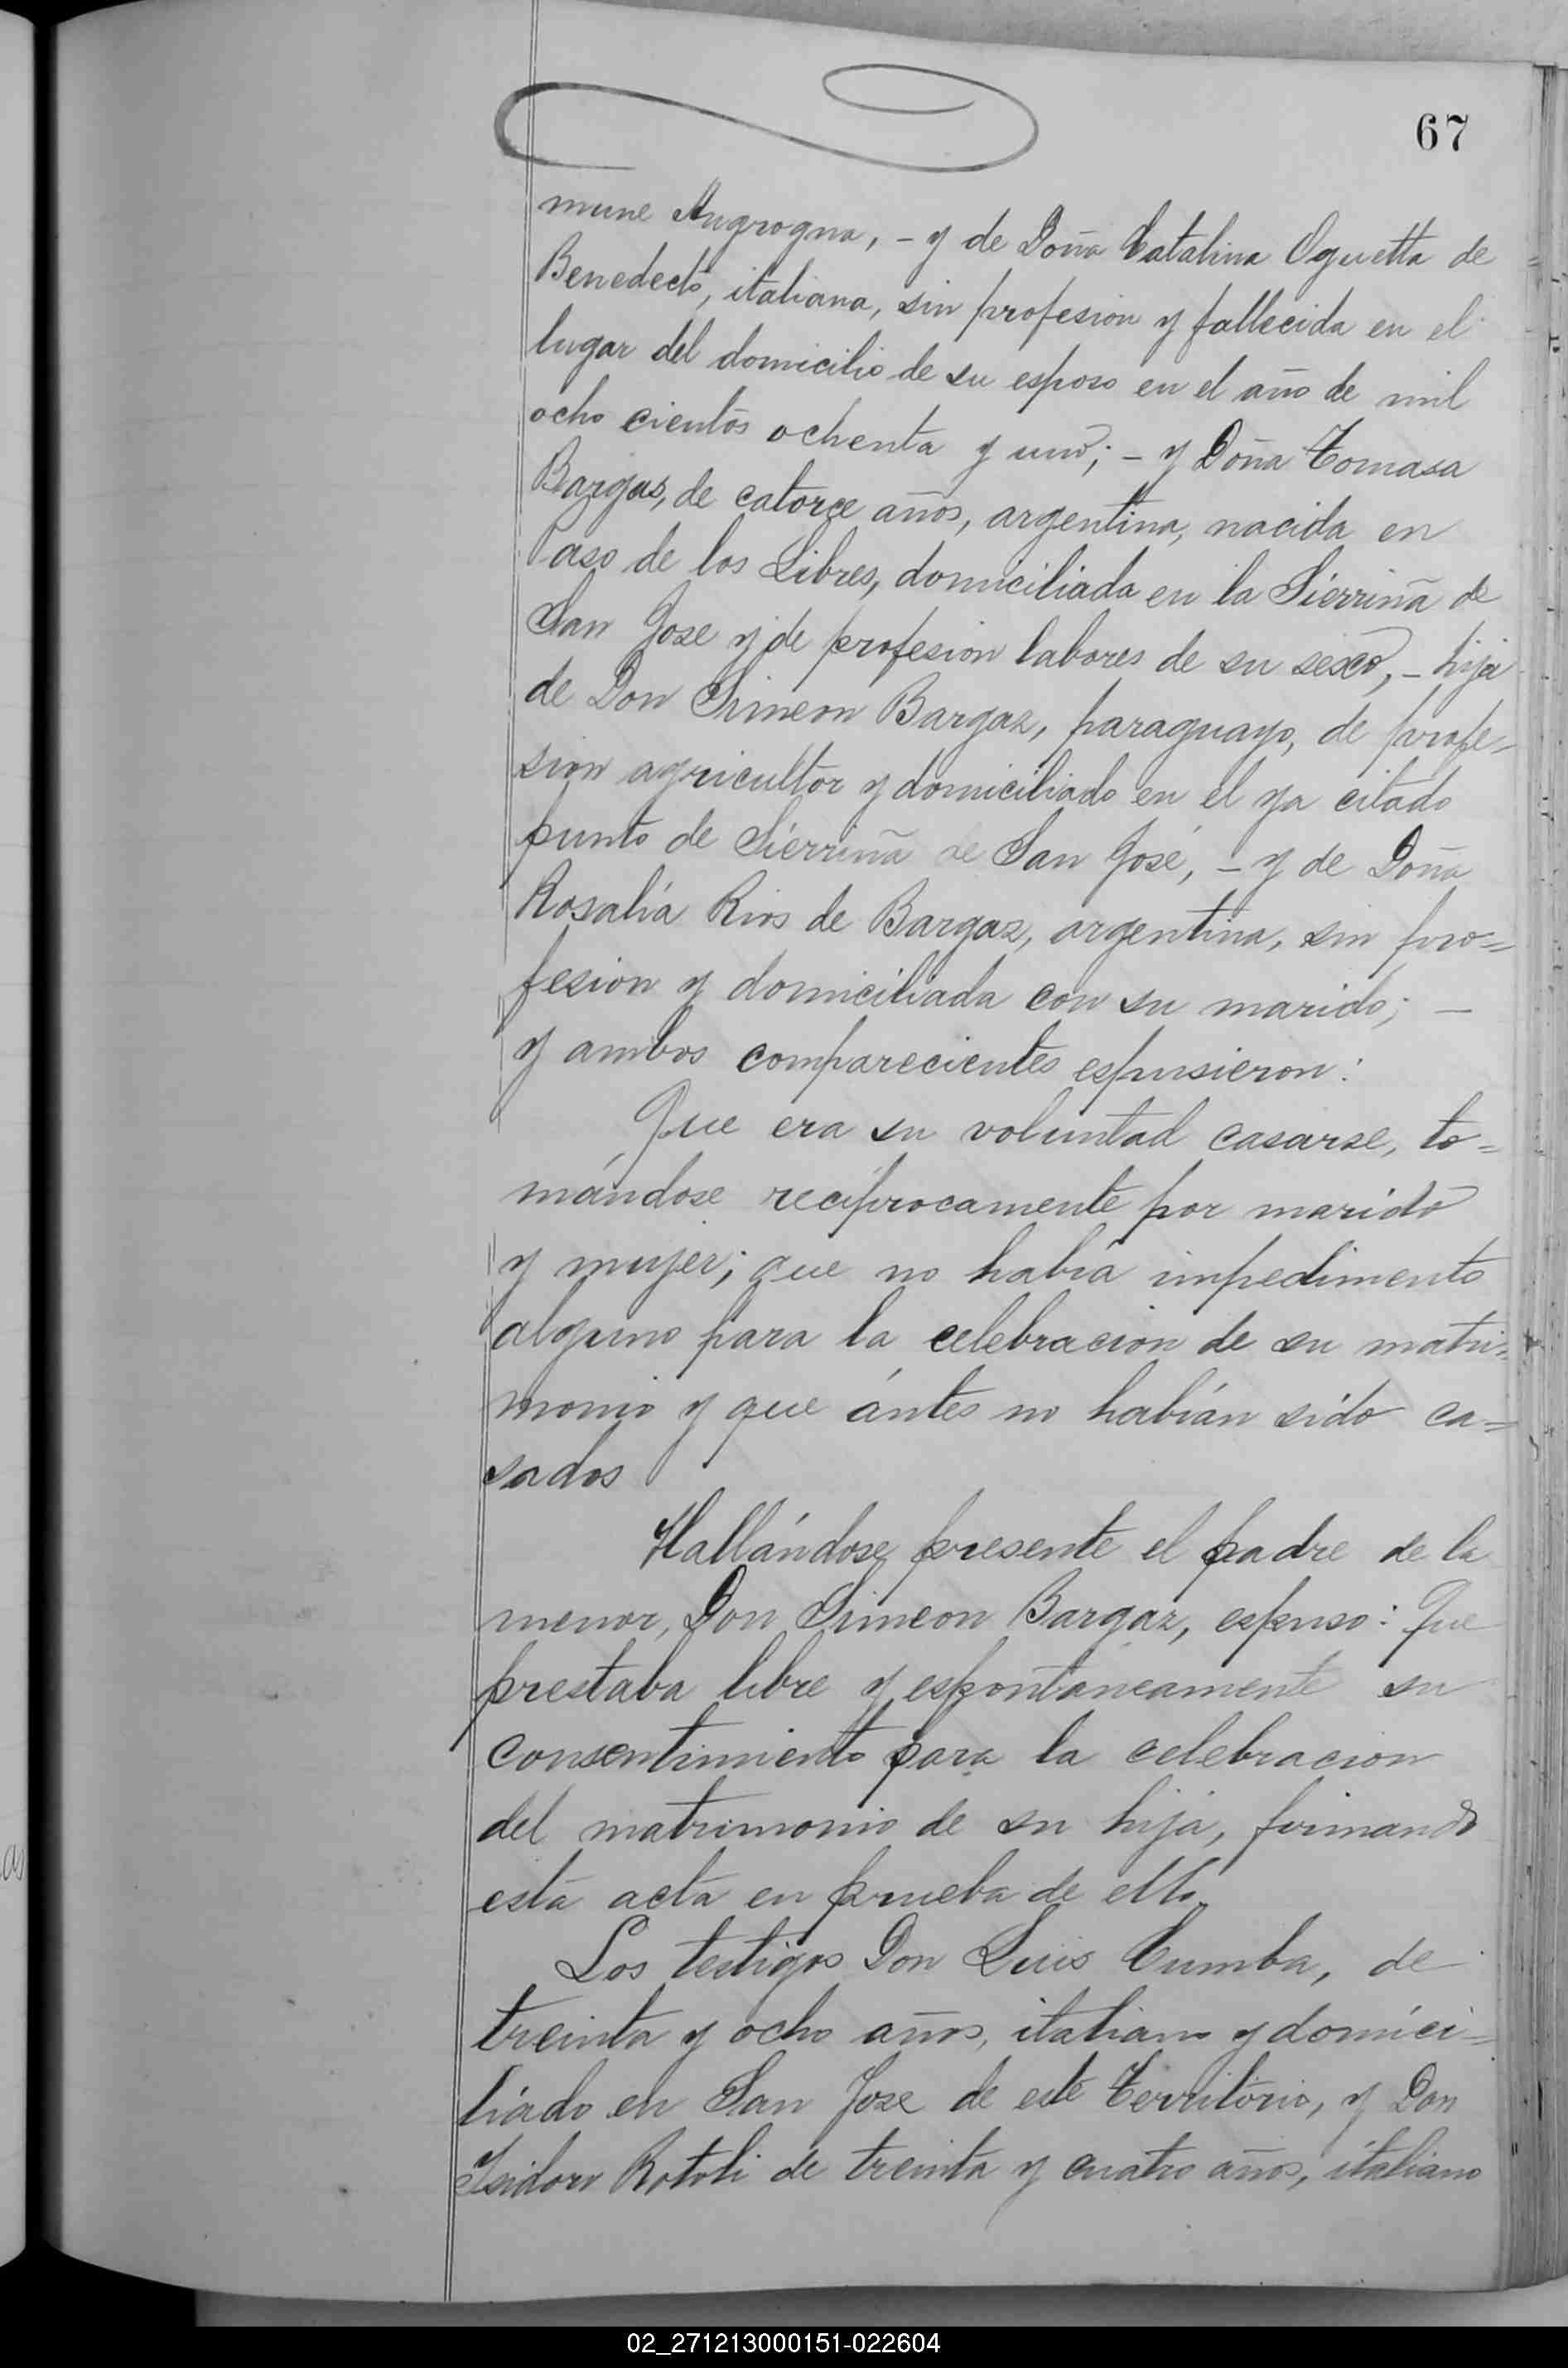 67
mune Angrogna, - y de Doña Catalina Oguetta de
Benedecto, italiana, sin profesion y fallecida en el
lugar del domicilio de su esposo en el año de mil
ocho cientos ochenta y uno; - y Doña Tomasa
Bargas, de catorce años, argentina, nacida en
Paso de los Libres, domiciliada en la Sierriña de
San Jose y de profesion labores de su sexo, - hija
de Don Simeon Bargaz, paraguayo, de profe=
sion agricultor y domiciliado en el ya citado
punto de Sierriña de San José, - y de Doña
Rosalía Rios de Bargaz, argentina, sin pro=
fesion y domiciliada con su marido; —
y ambos comparecientes espusieron:
Que era su voluntad casarse, to=
mándose recíprocamente por marido
y mujer; que no había impedimento
alguno para la celebracion de su matri=
monio y que ántes no habían sido ca=
sados
Hallándose presente el padre de la
menor, Don Simeon Bargaz, espuso: Que
prestaba libre y espontáneamente su
consentimiento para la celebracion
del matrimonio de su hija, firmando
esta acta en prueba de ello.
Los testigos Don Luis Cumba, de
treinta y ocho años, italiano y domici=
liado en San Jose de este Territorio, y Don
Isidoro Rotoli de treinta y cuatro años, italiano
02_271213000151-022604